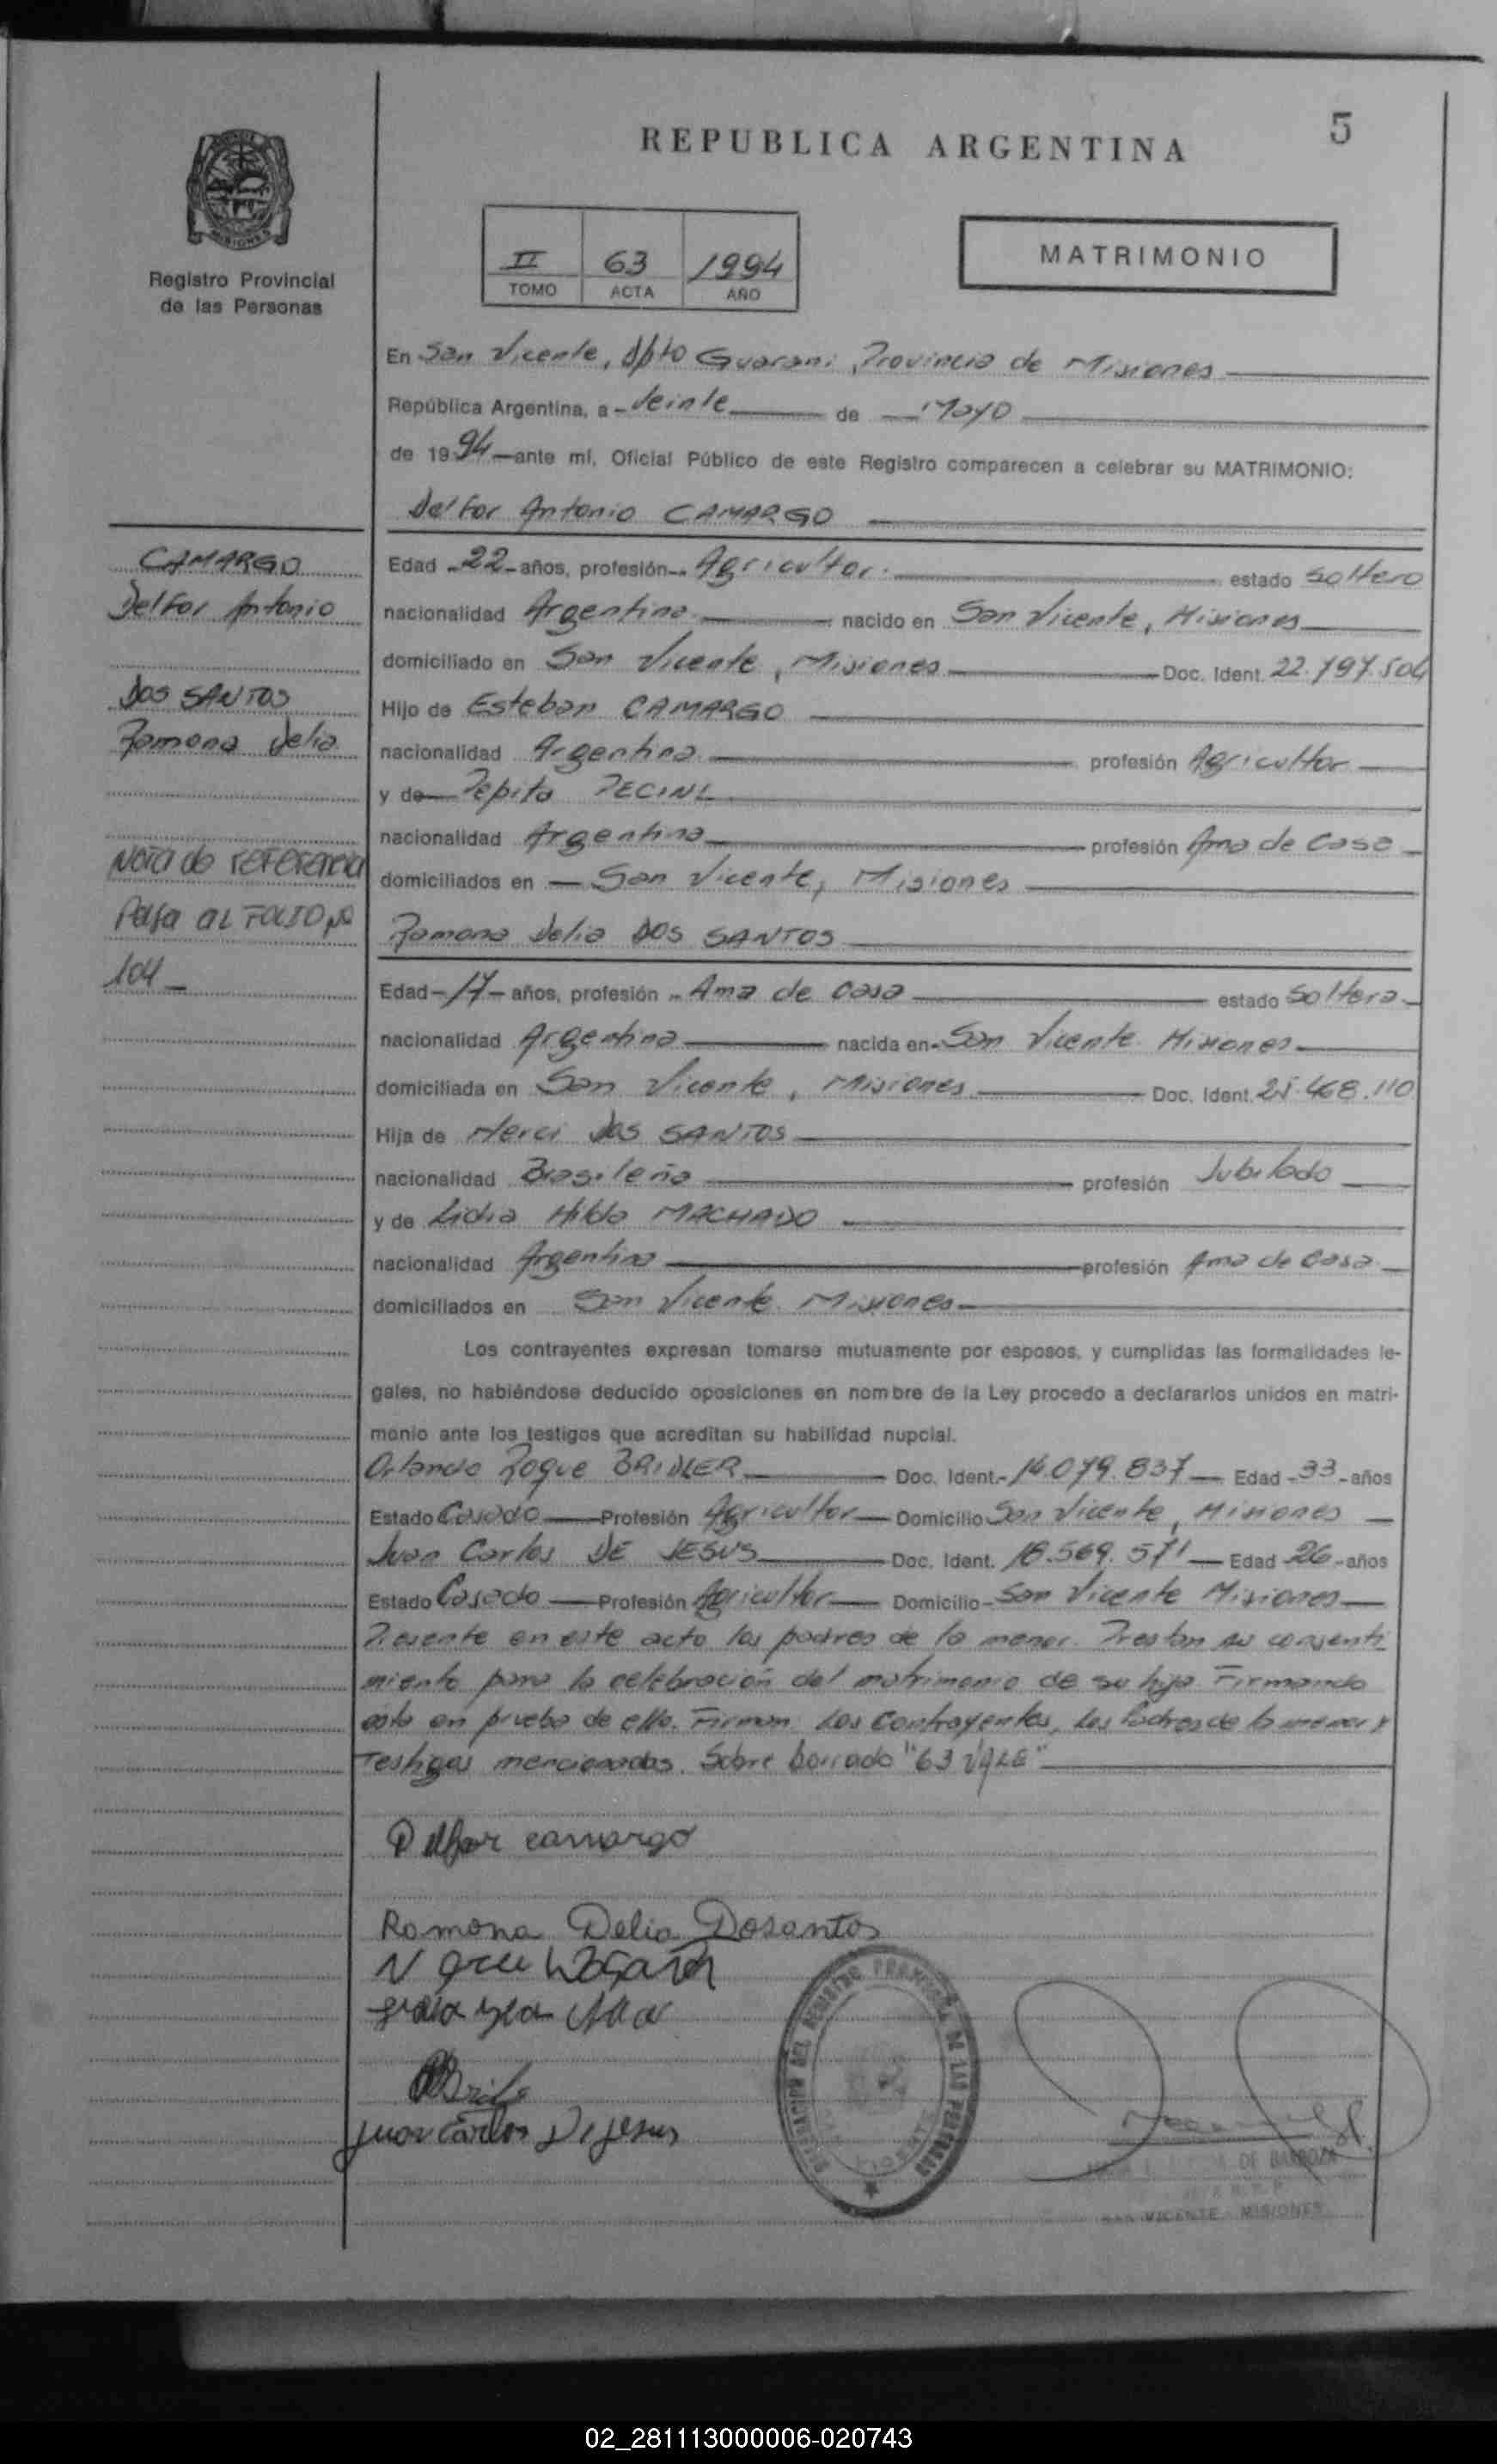 REPUBLICA ARGENTINA
5
MISIONES
Registro Provincial
de las Personas
II 63 1994
TOMO ACTA AÑO
MATRIMONIO
En San Vicente, Dpto Guarani, Provincia de Misiones
República Argentina, a - Veinte de Mayo
de 1994 - ante mí, Oficial Público de este Registro comparecen a celebrar su MATRIMONIO:
Delfor Antonio CAMARGO
CAMARGO
Delfor Antonio
DOS SANTOS
Ramona Delia
Nota de referencia
Pasa al Folio No
104
Edad - 22 - años, profesión - Agricultor. estado Soltero
nacionalidad Argentina nacido en San Vicente, Misiones
domiciliado en San Vicente, Misiones Doc. Ident. 22.797.504
Hijo de Esteban CAMARGO
nacionalidad Argentina profesión Agricultor
y de Pepita
nacionalidad Argentina profesión Ama de Casa
domiciliados en San Vicente, Misiones
Ramona Delia DOS SANTOS
Edad - 17 - años, profesión - Ama de Casa estado Soltera
nacionalidad Argentina nacida en - San Vicente Misiones
domiciliada en San Vicente, Misiones Doc. Ident. 25.468.110
Hija de Nerci DOS SANTOS
nacionalidad Brasileña profesión Jubilado
y de Lidia Hilda MACHADO
nacionalidad Argentina profesión Ama de Casa
domiciliados en San Vicente Misiones
Los contrayentes expresan tomarse mutuamente por esposos, y cumplidas las formalidades le-
gales, no habiéndose deducido oposiciones en nombre de la Ley procedo a declararlos unidos en matri-
monio ante los testigos que acreditan su habilidad nupcial.
Orlando Roque BRIDLER Doc. Ident. - 14.079.837 - Edad - 33 - años
Estado Casado Profesión Agricultor Domicilio San Vicente, Misiones
Juan Carlos DE JESUS Doc. Ident. 18.569.571 - Edad 26 - años
Estado Casado Profesión Agricultor Domicilio - San Vicente Misiones
Presente en este acto los padres de la menor. Prestan su consenti
miento para la celebración del matrimonio de su hija Firmando
esta en prueba de ello. Firman: Los Contrayentes, Los Padres de la menor y
Testigos mencionados. Sobre borrado "63 VALE"
Delfor camargo
Ramona Delia Dosantos
Juan Carlos Dejesus
DELEGACION DEL REGISTRO PROVINCIAL DE LAS PERSONAS
SAN VICENTE
DE BARBOZA
SAN VICENTE - MISIONES
02_281113000006-020743